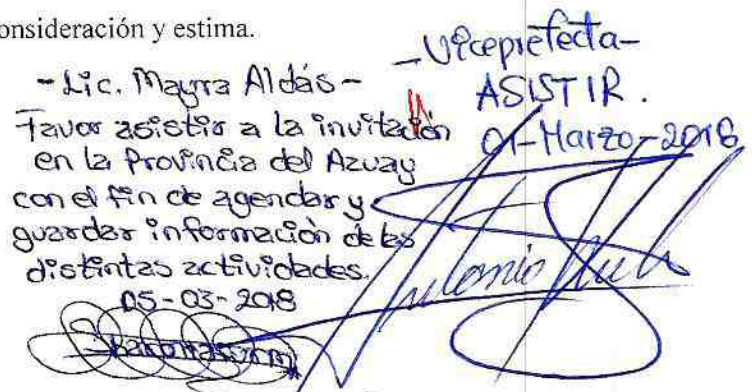 onsideración y estima.
- Lic. Mayra Aldás -
Favor asistir a la invitación
en la Provincia del Azuay
con el fin de agendar y
guardar información de las
distintas actividades.
05-03-2018
- Viceprefecta -
ASISTIR.
01-Marzo-2018
Antonio